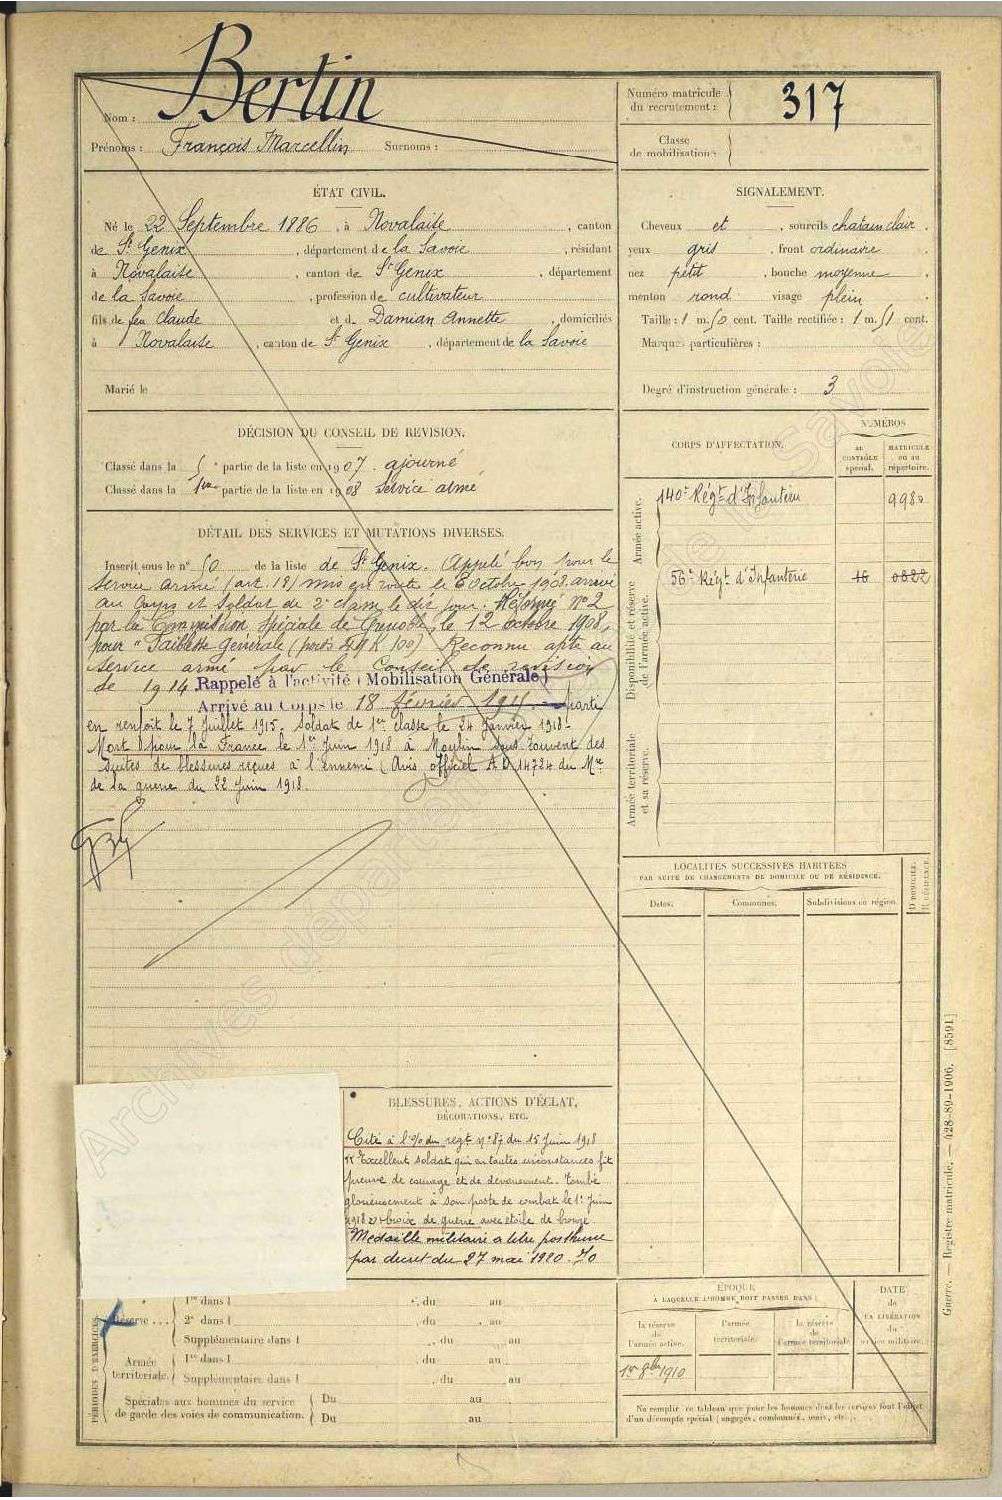 Nom : Bertin
Prénoms : François Marcellin Surnoms :
Numéro matricule du recrutement : 317
Classe de mobilisation
ÉTAT CIVIL.
Né le 22 Septembre 1886, à Novalaise, canton
de St Genix, département de la Savoie, résidant
à Novalaise, canton de St Genix, département
de la Savoie, profession de cultivateur
fils de feu Claude et de Damian Annette, domiciliés
à Novalaise, canton de St Genix, département de la Savoie
Marié le
SIGNALEMENT.
Cheveux et, sourcils chatain clair.
yeux gris, front ordinaire
nez petit, bouche moyenne,
menton rond visage plein
Taille : 1 m. 50 cent. Taille rectifiée : 1 m. 51 cent.
Marques particulières :
Degré d'instruction générale : 3
DÉCISION DU CONSEIL DE REVISION.
Classé dans la 5e partie de la liste en 1907. ajourné
Classé dans la 1re partie de la liste en 1908 Service armé
DÉTAIL DES SERVICES ET MUTATIONS DIVERSES.
Inscrit sous le n° 50 de la liste de St Genix. Appelé bon pour le
service armé (art. 18) mis en route le 6 octobre 1908. arrivé
au Corps et Soldat de 2e classe le dit jour. Réformé n° 2
par la Commission spéciale de Grenoble, le 12 octobre 1908,
pour "Faiblesse générale (poids 49 K 100) Reconnu apte au
service armé par le Conseil de revision
de 1914 Rappelé à l'activité (Mobilisation Générale)
Arrivé au Corps le 18 février parti
en renfort le 7 Juillet 1915. Soldat de 1re classe le 24 Janvier 1918.
Mort pour la France le 1er Juin 1918 à Moulin sous Touvent des
suites de blessures reçues à l'ennemi (Avis officiel A.D. 14724 du Mre
de la guerre du 22 Juin 1918.
CORPS D'AFFECTATION.
NUMÉROS
AU CONTRÔLE spécial.
MATRICULE ou au répertoire.
Armée active.
140e Régt d'Infanterie
Disponibilité et réserve de l'armée active.
56e Régt d'Infanterie 16 0822
Armée territoriale et sa réserve.
LOCALITÉS SUCCESSIVES HABITÉES
PAR SUITE DE CHANGEMENTS DE DOMICILE OU DE RÉSIDENCE.
Dates. Communes. Subdivisions en région. D DOMICILE. R RÉSIDENCE.
BLESSURES, ACTIONS D'ÉCLAT,
DÉCORATIONS, ETC.
Cité à l'O/ du régt n° 87 du 15 Juin 1918
"Excellent soldat qui en toutes circonstances fit
preuve de courage et de dévouement. Tombé
glorieusement à son poste de combat le 1er Juin
1918" Croix de guerre avec étoile de bronze
Médaille militaire à titre posthume
par décret du 27 mai 1920. JO
PÉRIODES D'EXERCICES
Réserve ... 1re dans l , du au
2e dans l , du , au
Supplémentaire dans l , du au
Armée territoriale. 1re dans l , du au
Supplémentaire dans l , du au
Spéciales aux hommes du service de garde des voies de communication. Du au
Du au
ÉPOQUE
À LAQUELLE L'HOMME DOIT PASSER DANS :
la réserve de l'armée active.
l'armée territoriale.
la réserve de l'armée territoriale
DATE de LA LIBÉRATION du service militaire.
1er 8bre 1910
Ne remplir ce tableau que pour les hommes dont les services font l'objet
d'un décompte spécial (engagés, condamnés, omis, etc.).
Guerre. — Registre matricule. — 428-89-1906. [8591]
Archives départementales de Savoie